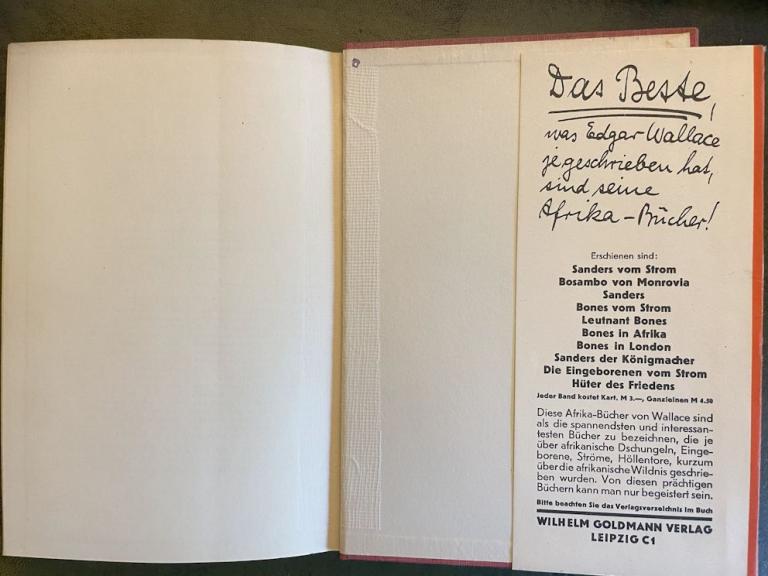 Das Beste,
was Edgar Wallace
je geschrieben hat,
sind seine
Afrika-Bücher!
Erschienen sind:
Sanders vom Strom
Bosambo von Monrovia
Sanders
Bones vom Strom
Leutnant Bones
Bones in Afrika
Bones in London
Sanders der Königmacher
Die Eingeborenen vom Strom
Hüter des Friedens
Jeder Band kostet Kart. M 3.—, Ganzleinen M 4.50
Diese Afrika-Bücher von Wallace sind
als die spannendsten und interessan-
testen Bücher zu bezeichnen, die je
über afrikanische Dschungeln, Einge-
borene, Ströme, Höllentore, kurzum
über die afrikanische Wildnis geschrie-
ben wurden. Von diesen prächtigen
Büchern kann man nur begeistert sein.
Bitte beachten Sie das Verlagsverzeichnis im Buch
WILHELM GOLDMANN VERLAG
LEIPZIG C1